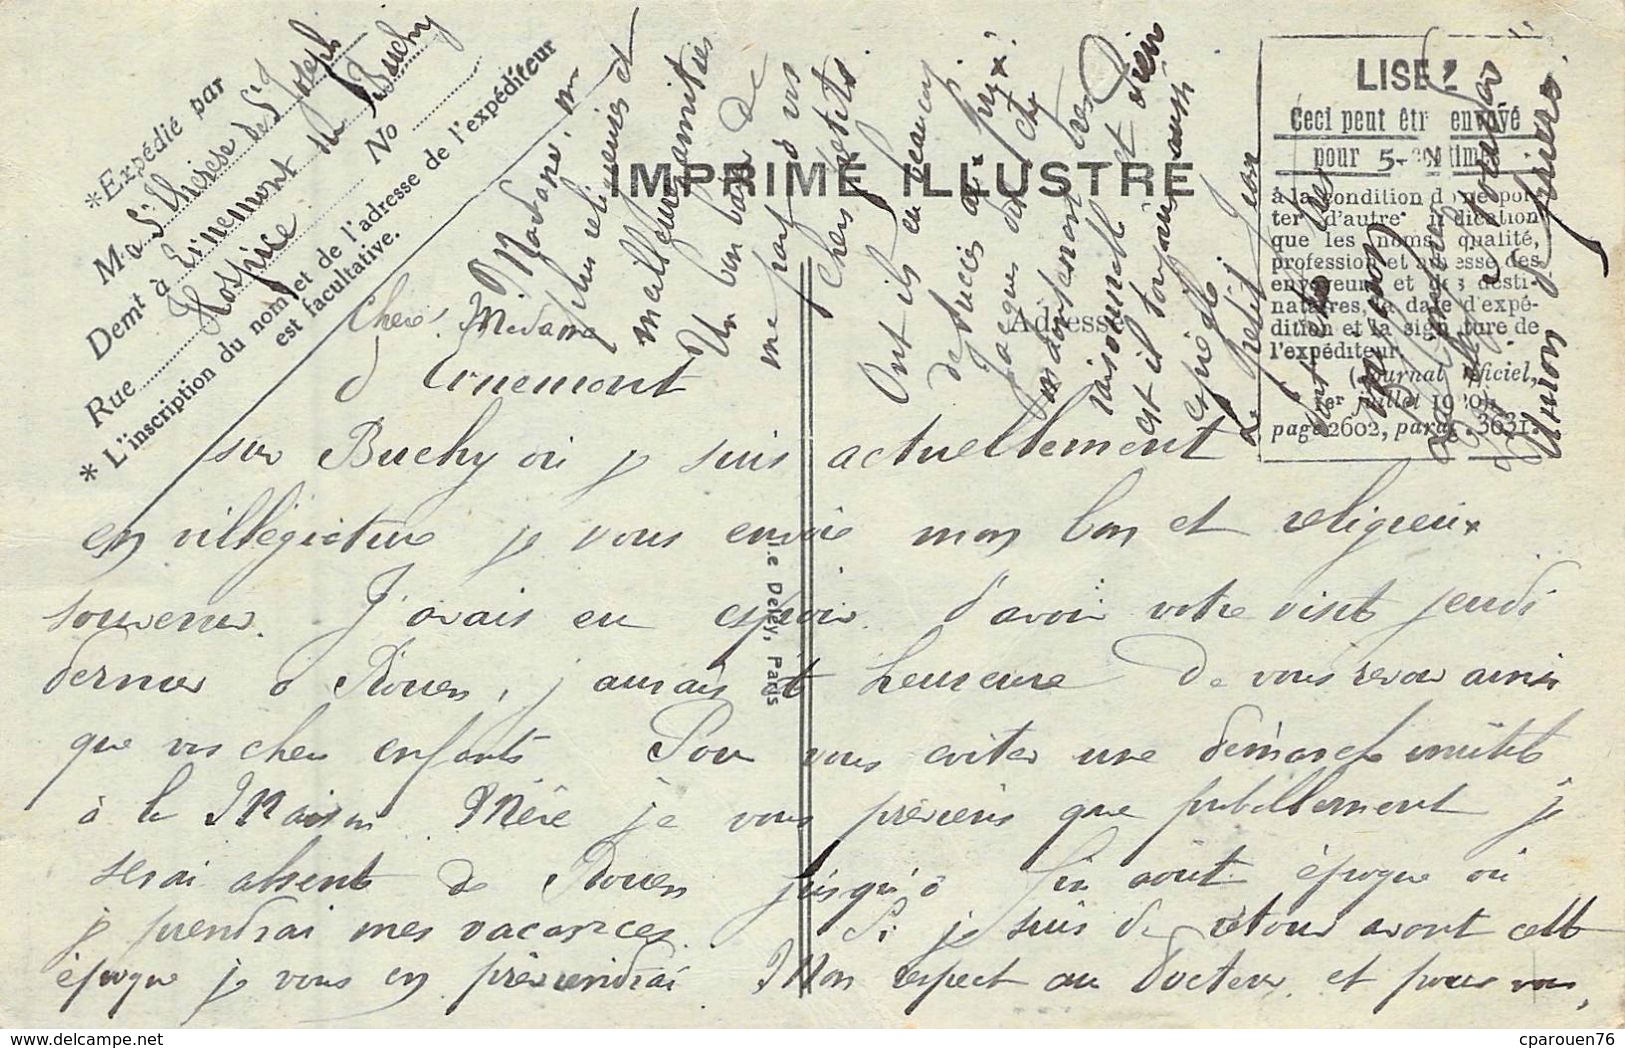 *Expédié par
Me Sr Thérèse de St Joseph
Demt à Ernemont sr Buchy
Rue Hospice No
* L'inscription du nom et de l'adresse de l'expéditeur
est facultative.
IMPRIMÉ ILLUSTRÉ
Adresse
LISEZ
Ceci peut être envoyé
pour 5 centimes
à la condition de ne por-
ter d'autre indication
que les noms, qualité,
profession et adresse des
envoyeurs et des desti-
nataires, la date d'expé-
dition et la signature de
l'expéditeur.
(Journal officiel,
1er juillet 1920,
page 2602, parag. 3631.
I.e Deley, Paris
Chère Madame
d'Ernemont
sur Buchy où je suis actuellement
en villégiature je vous envoie mon bon et religieux
souvenir. J'avais eu espoir d'avoir votre visite jeudi
dernier à Rouen, j'aurais été heureuse de vous revoir ainsi
que vos chers enfants Pour vous éviter une démarche inutile
à la Maison Mère je vous préviens que probablement je
serai absente de Rouen jusqu'à fin août époque où
je prendrai mes vacances. Si je suis de retour avant cette
époque je vous en préviendrai. Mon respect au Docteur et pour vous,
Madame, m
plus religieuses et
meilleures amitiés
Un bon baiser de
ma part à vos
chers petits.
Ont ils eu beaucoup
de succès aux prix?
Jacques doit être
maintenant très
raisonnable et bien
est il toujours aussi
espiègle
Le petit Jean
mon bon
Union prières.